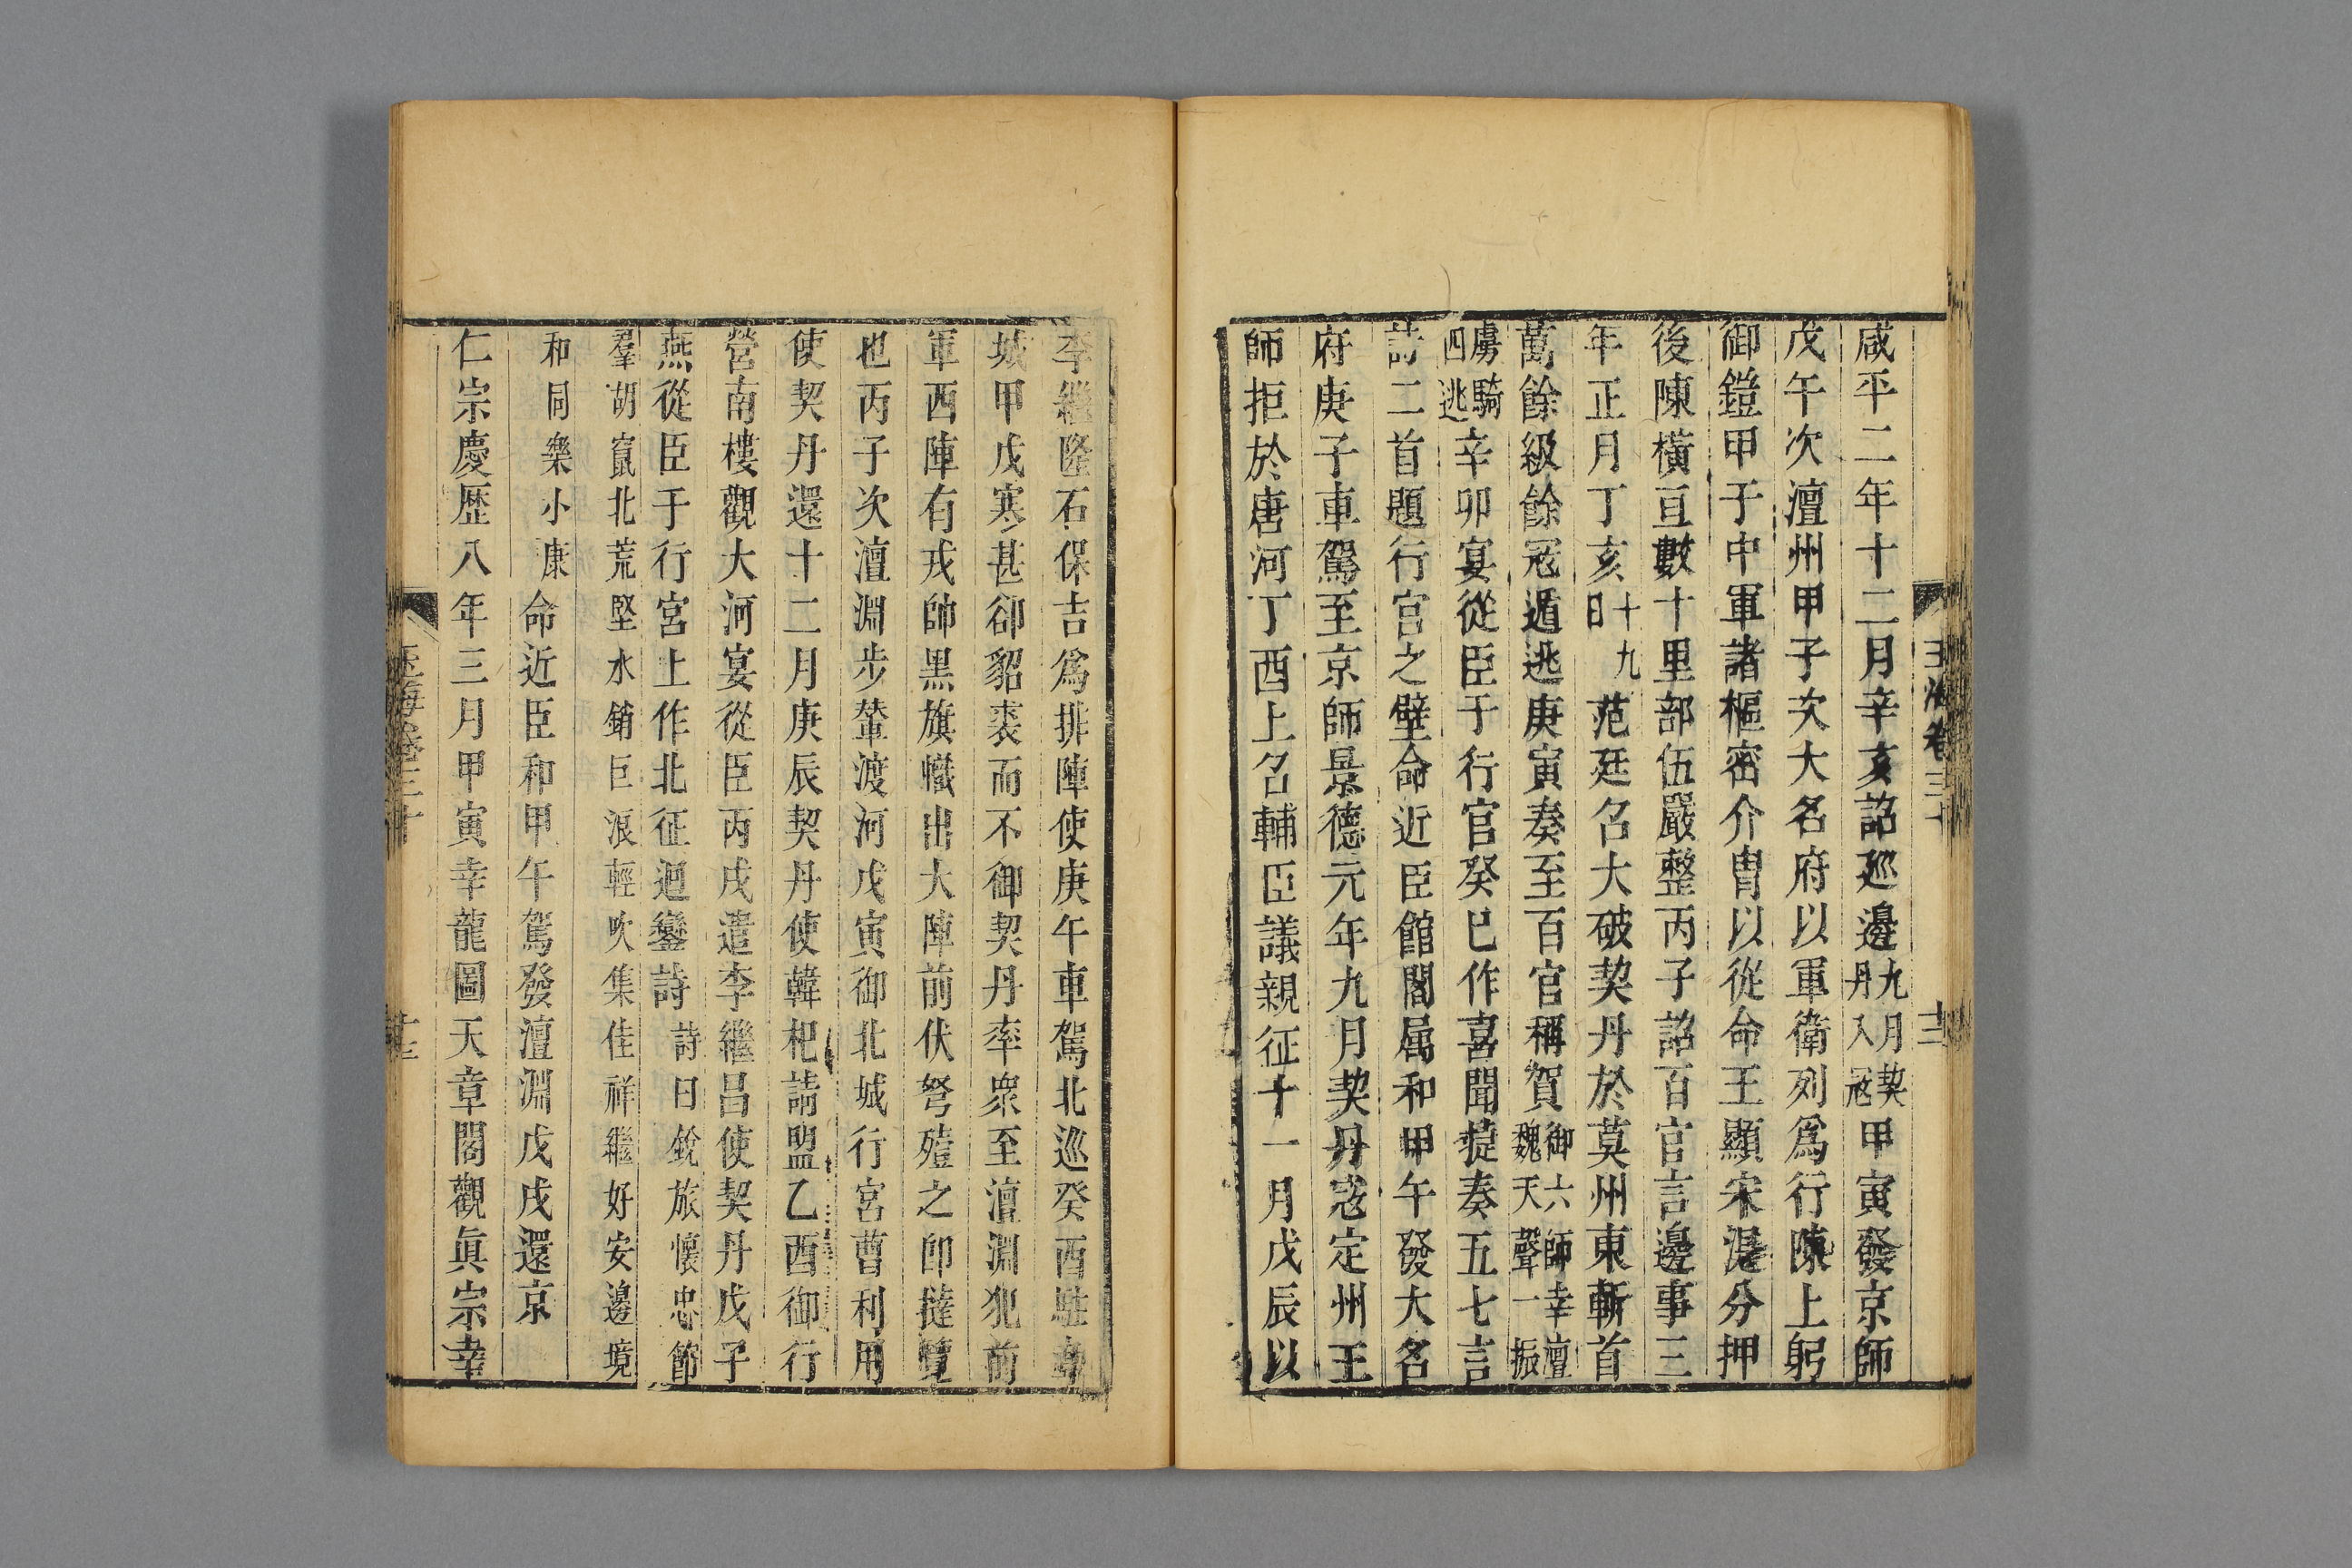 咸平二年十二月辛亥詔廵邊九月契丹入冦甲寅發京師
戊午次澶州甲子次大名府以軍衛列爲行陳上躬
御鎧甲于中軍諸樞密介冑以從命王顯宋湜分押
後陳橫亘數十里部伍嚴整丙子詔百官言邊事三
年正月丁亥十九日范廷召大破契丹於莫州東斬首
萬餘級餘冦遁逃庚寅奏至百官稱賀御六師幸澶魏天聲一振
虜騎四逃辛卯宴從臣于行官癸巳作喜聞捷奏五七言
詩二首題行宫之壁命近臣館閣属和甲午發大名
府庚子車駕至京師景德元年九月契丹冦定州王
師拒於唐河丁酉上召輔臣議親征十一月戊辰以
玉海卷三十
十三
李繼隆石保吉爲排陣使庚午車駕北巡癸酉駐韋
城甲戌寒甚卻貂裘而不御契丹率衆至澶淵犯前
軍西陣有戎帥黑旗幟出大陣前伏弩殪之卽撻覽
也丙子次澶淵步輦渡河戊寅御北城行宮曹利用
使契丹還十二月庚辰契丹使韓杞請盟乙酉御行
營南樓觀大河宴從臣丙戌遣李繼昌使契丹戊子
燕從臣于行宮上作北征迴鑾詩詩曰銳旅懷忠節
羣胡竄北荒堅水銷巨浪輕吹集佳祥繼好安邊境
和同樂小康命近臣和甲午駕發澶淵戊戌還京
仁宗慶歷八年三月甲寅幸龍圖天章閣觀眞宗幸
玉海卷三十
十三